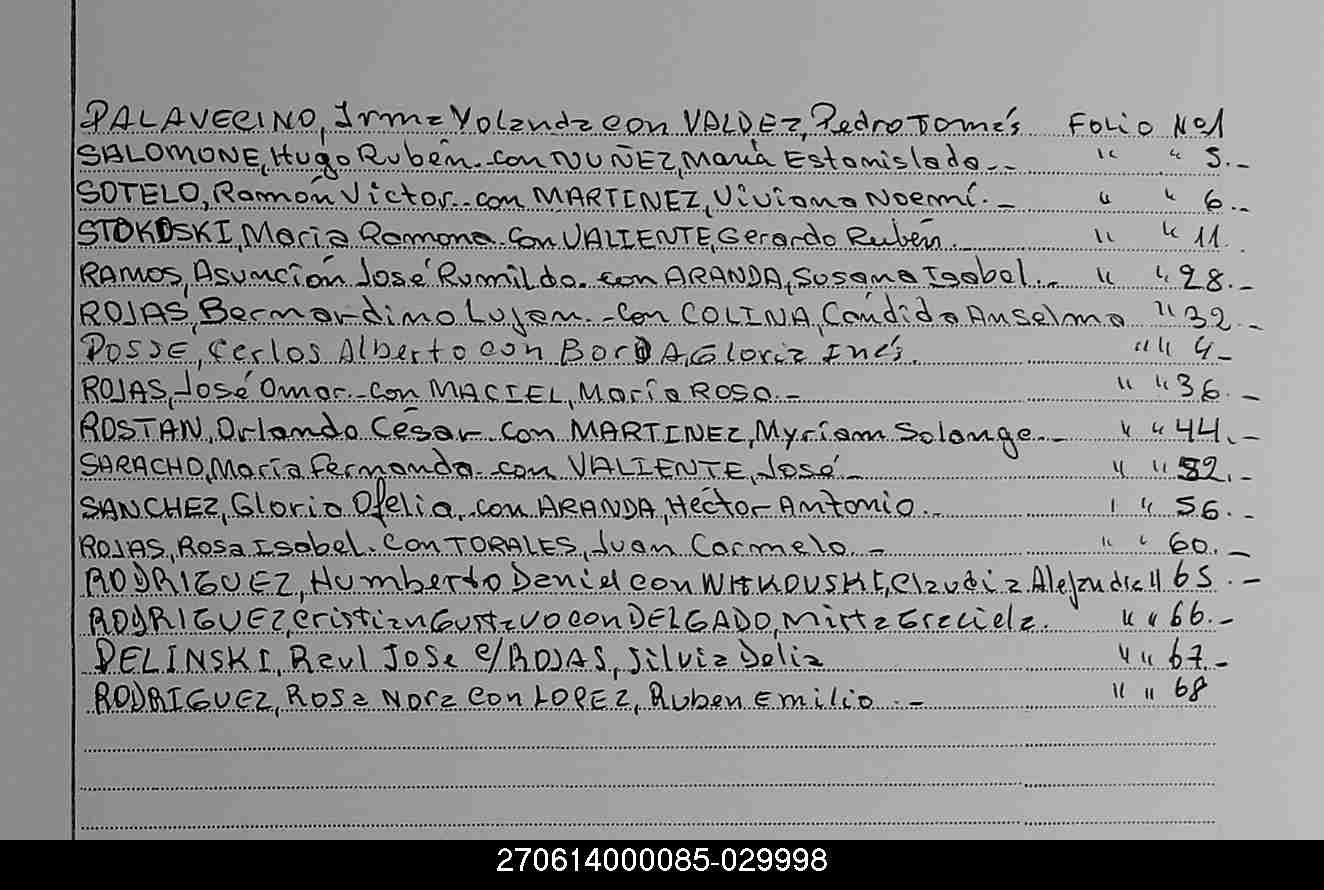 PALAVECINO, Irma Yolanda con VALDEZ, Pedro Tomás Folio Nº1
SALOMONE, Hugo Rubén. con NUÑEZ, María Estanislada.- " " 5.-
SOTELO, Ramón Victor.. con MARTINEZ, Viviana Noemí.- " " 6.-
STOKOSKI, María Ramona. con VALIENTE, Gerardo Rubén. " " 11.
RAMOS, Asunción José Rumildo. con ARANDA, Susana Isabel.- " " 28.-
ROJAS, Bernardino Lujan.- con COLINA, Cándida Anselma " 32.-
POSSE, Carlos Alberto con BORDA, Gloria Inés. " " 4-
ROJAS, José Omar.- con MACIEL, María ROSA.- " " 36.-
ROSTAN, Orlando César con MARTINEZ, Myriam Solange.- " " 44.-
SARACHO, María Fernanda. con VALIENTE, José " " 52.-
SANCHEZ, Gloria Ofelia. con ARANDA, Héctor Antonio.- " " 56.-
ROJAS, Rosa Isabel. con TORALES, Juan Carmelo.- " " 60.-
RODRIGUEZ, Humberto Daniel con WITKOUSKI, Claudia Alejandra " 65.-
RODRIGUEZ, Cristian Gustavo con DELGADO, Mirta Graciela. " " 66.-
DELINSKI, Raul Jose c/ ROJAS, Silvia Delia " " 67.-
RODRIGUEZ, Rosa Nora con LOPEZ, Ruben Emilio.- " " 68
270614000085-029998